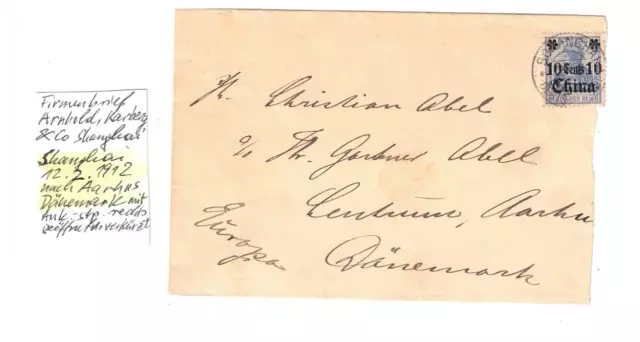 Firmenbrief
Arnhold, Karberg
& Co Shanghai
Shanghai
12.2.1912
nach Aarhus
Dänemark mit
Ank.-stp. rechts
SHANGHAI
10 Cents 10
China
Christian Abel
c/o Hr. Gartner Abel
Centrum, Aarhus
Europa
Dänemark